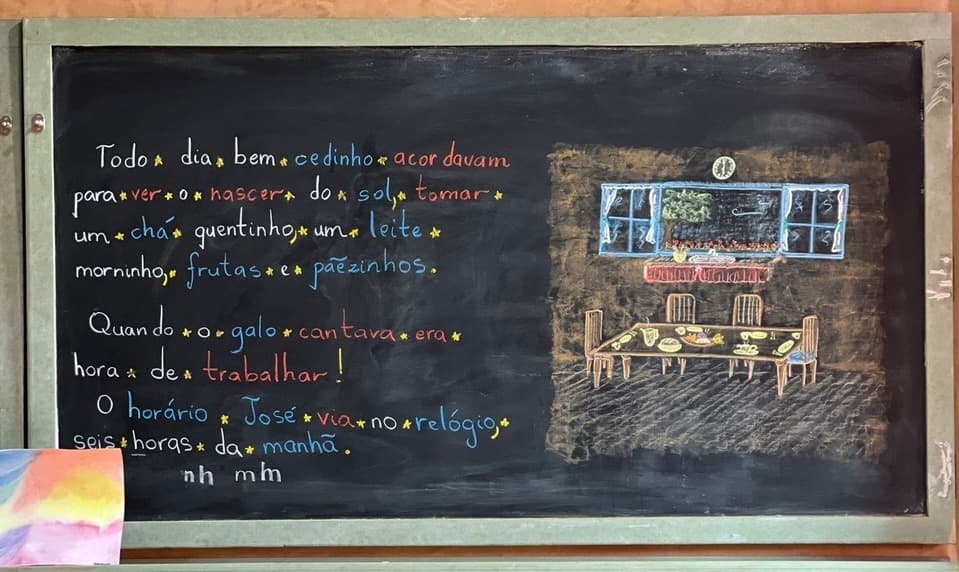 Todo dia, bem cedinho acordavam
para ver o nascer do sol, tomar
um chá quentinho, um leite
morninho, frutas e pãezinhos.
Quando o galo cantava era
hora de trabalhar!
O horário José via no relógio,
seis horas da manhã.
nh mh